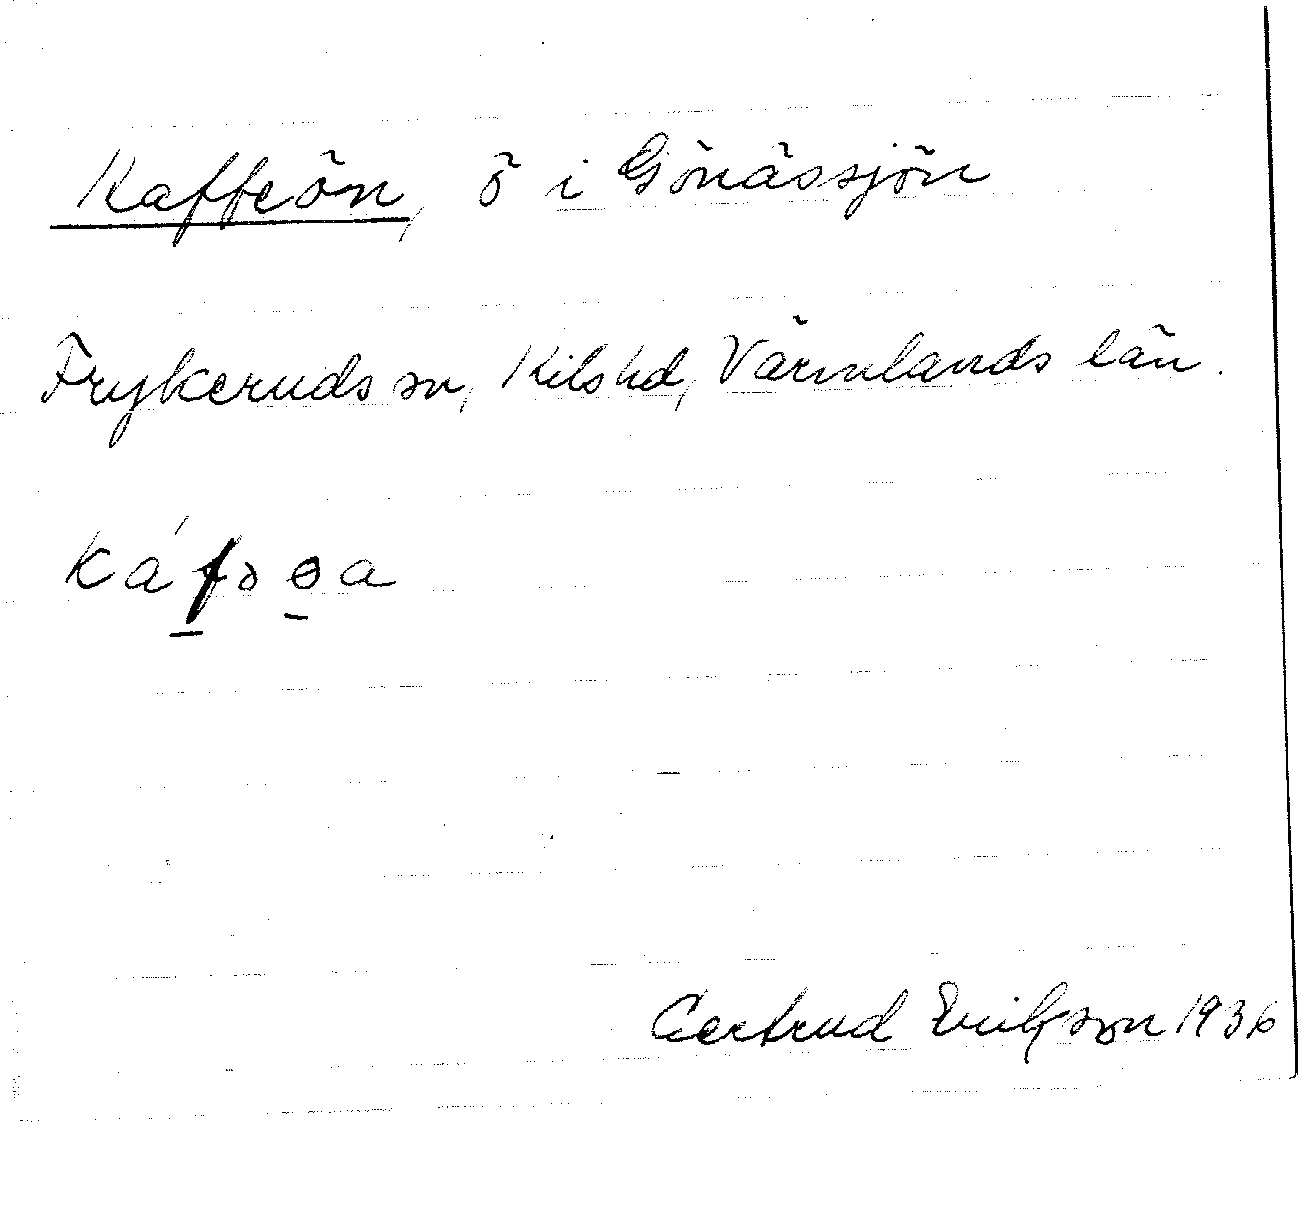 Kaffeön, ö i Gönässjön
Frykeruds sn, Kils hd, Värmlands län.
ká f̲ə ɵ̲a
Gertrud Erikson 1936